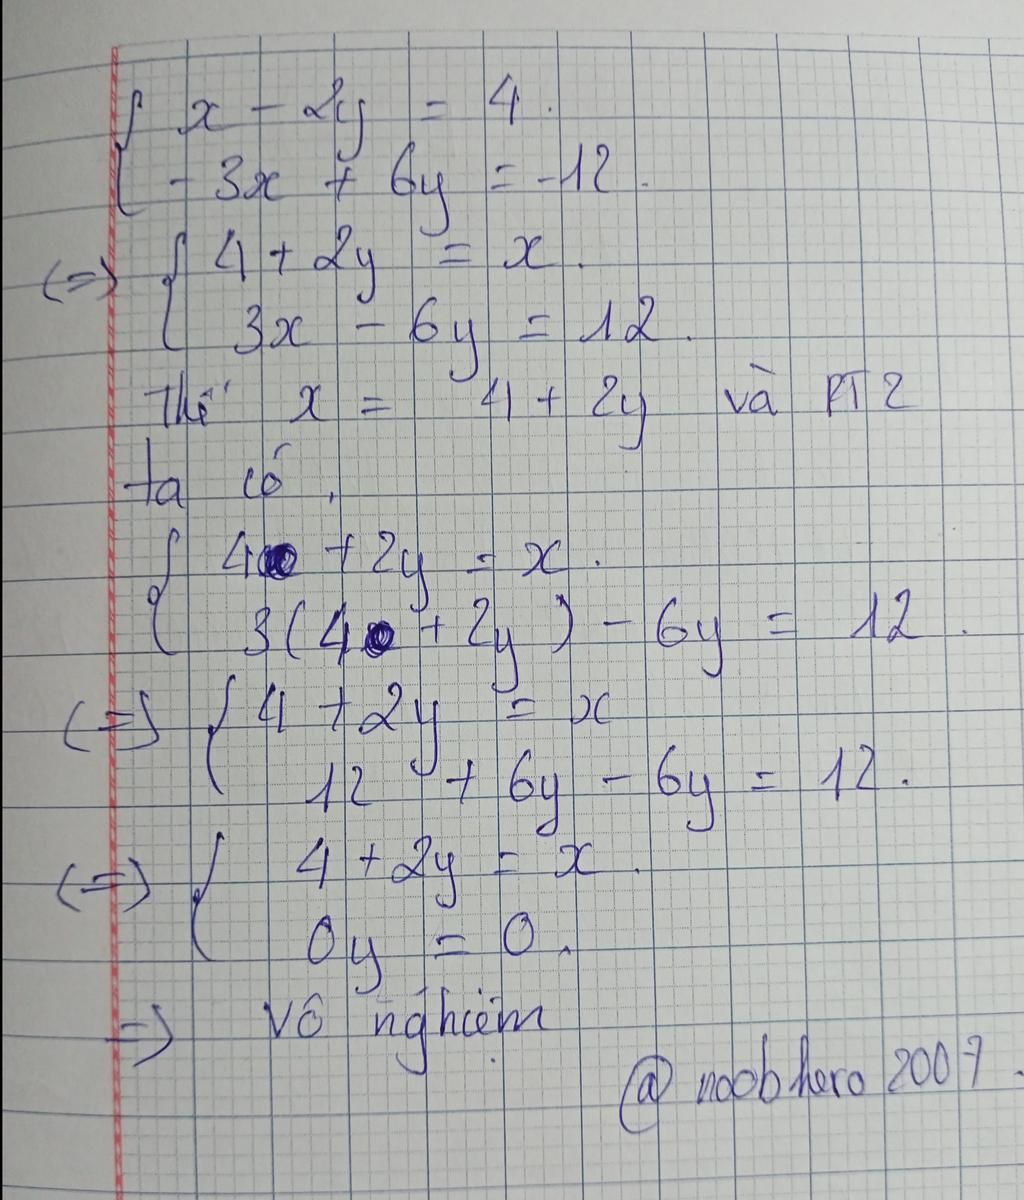 { x - 2y = 4.
- 3x + 6y = -12.
(=) { 4 + 2y = x.
3x - 6y = 12.
Thế x = 4 + 2y và PT2
ta có,
{ 4 + 2y = x.
3(4 + 2y) - 6y = 12.
(=) { 4 + 2y = x
12 + 6y - 6y = 12.
(=) { 4 + 2y = x.
0y = 0.
=) Vô nghiệm
@ noobhero 2007.